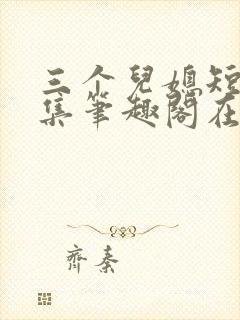 三个兒媳短
集筆趣閣在
齊秦